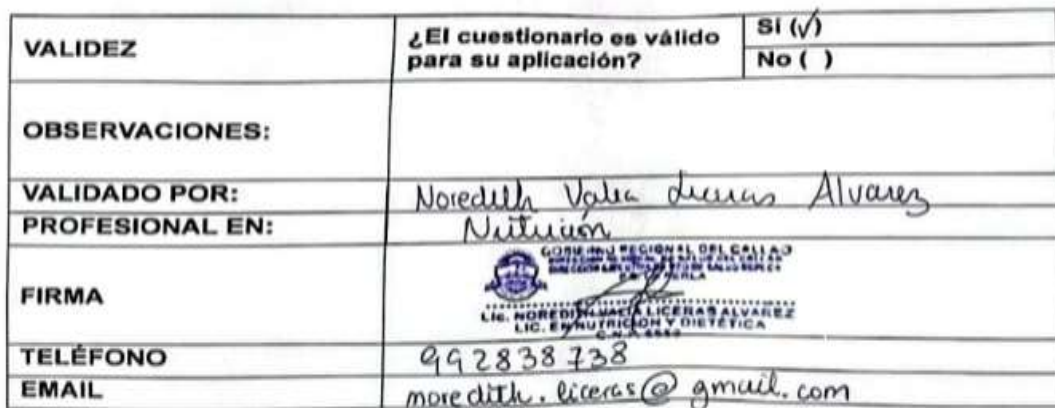 VALIDEZ
¿El cuestionario es válido para su aplicación?
Si (√)
No ( )
OBSERVACIONES:
VALIDADO POR: Noredith Valia Liceras Alvarez
PROFESIONAL EN: Nutrición
FIRMA
GOBIERNO REGIONAL DEL CALLAO
LIC. NOREDITH VALIA LICERAS ALVAREZ
LIC. EN NUTRICION Y DIETÉTICA
TELÉFONO 992838738
EMAIL noredith.liceras@gmail.com